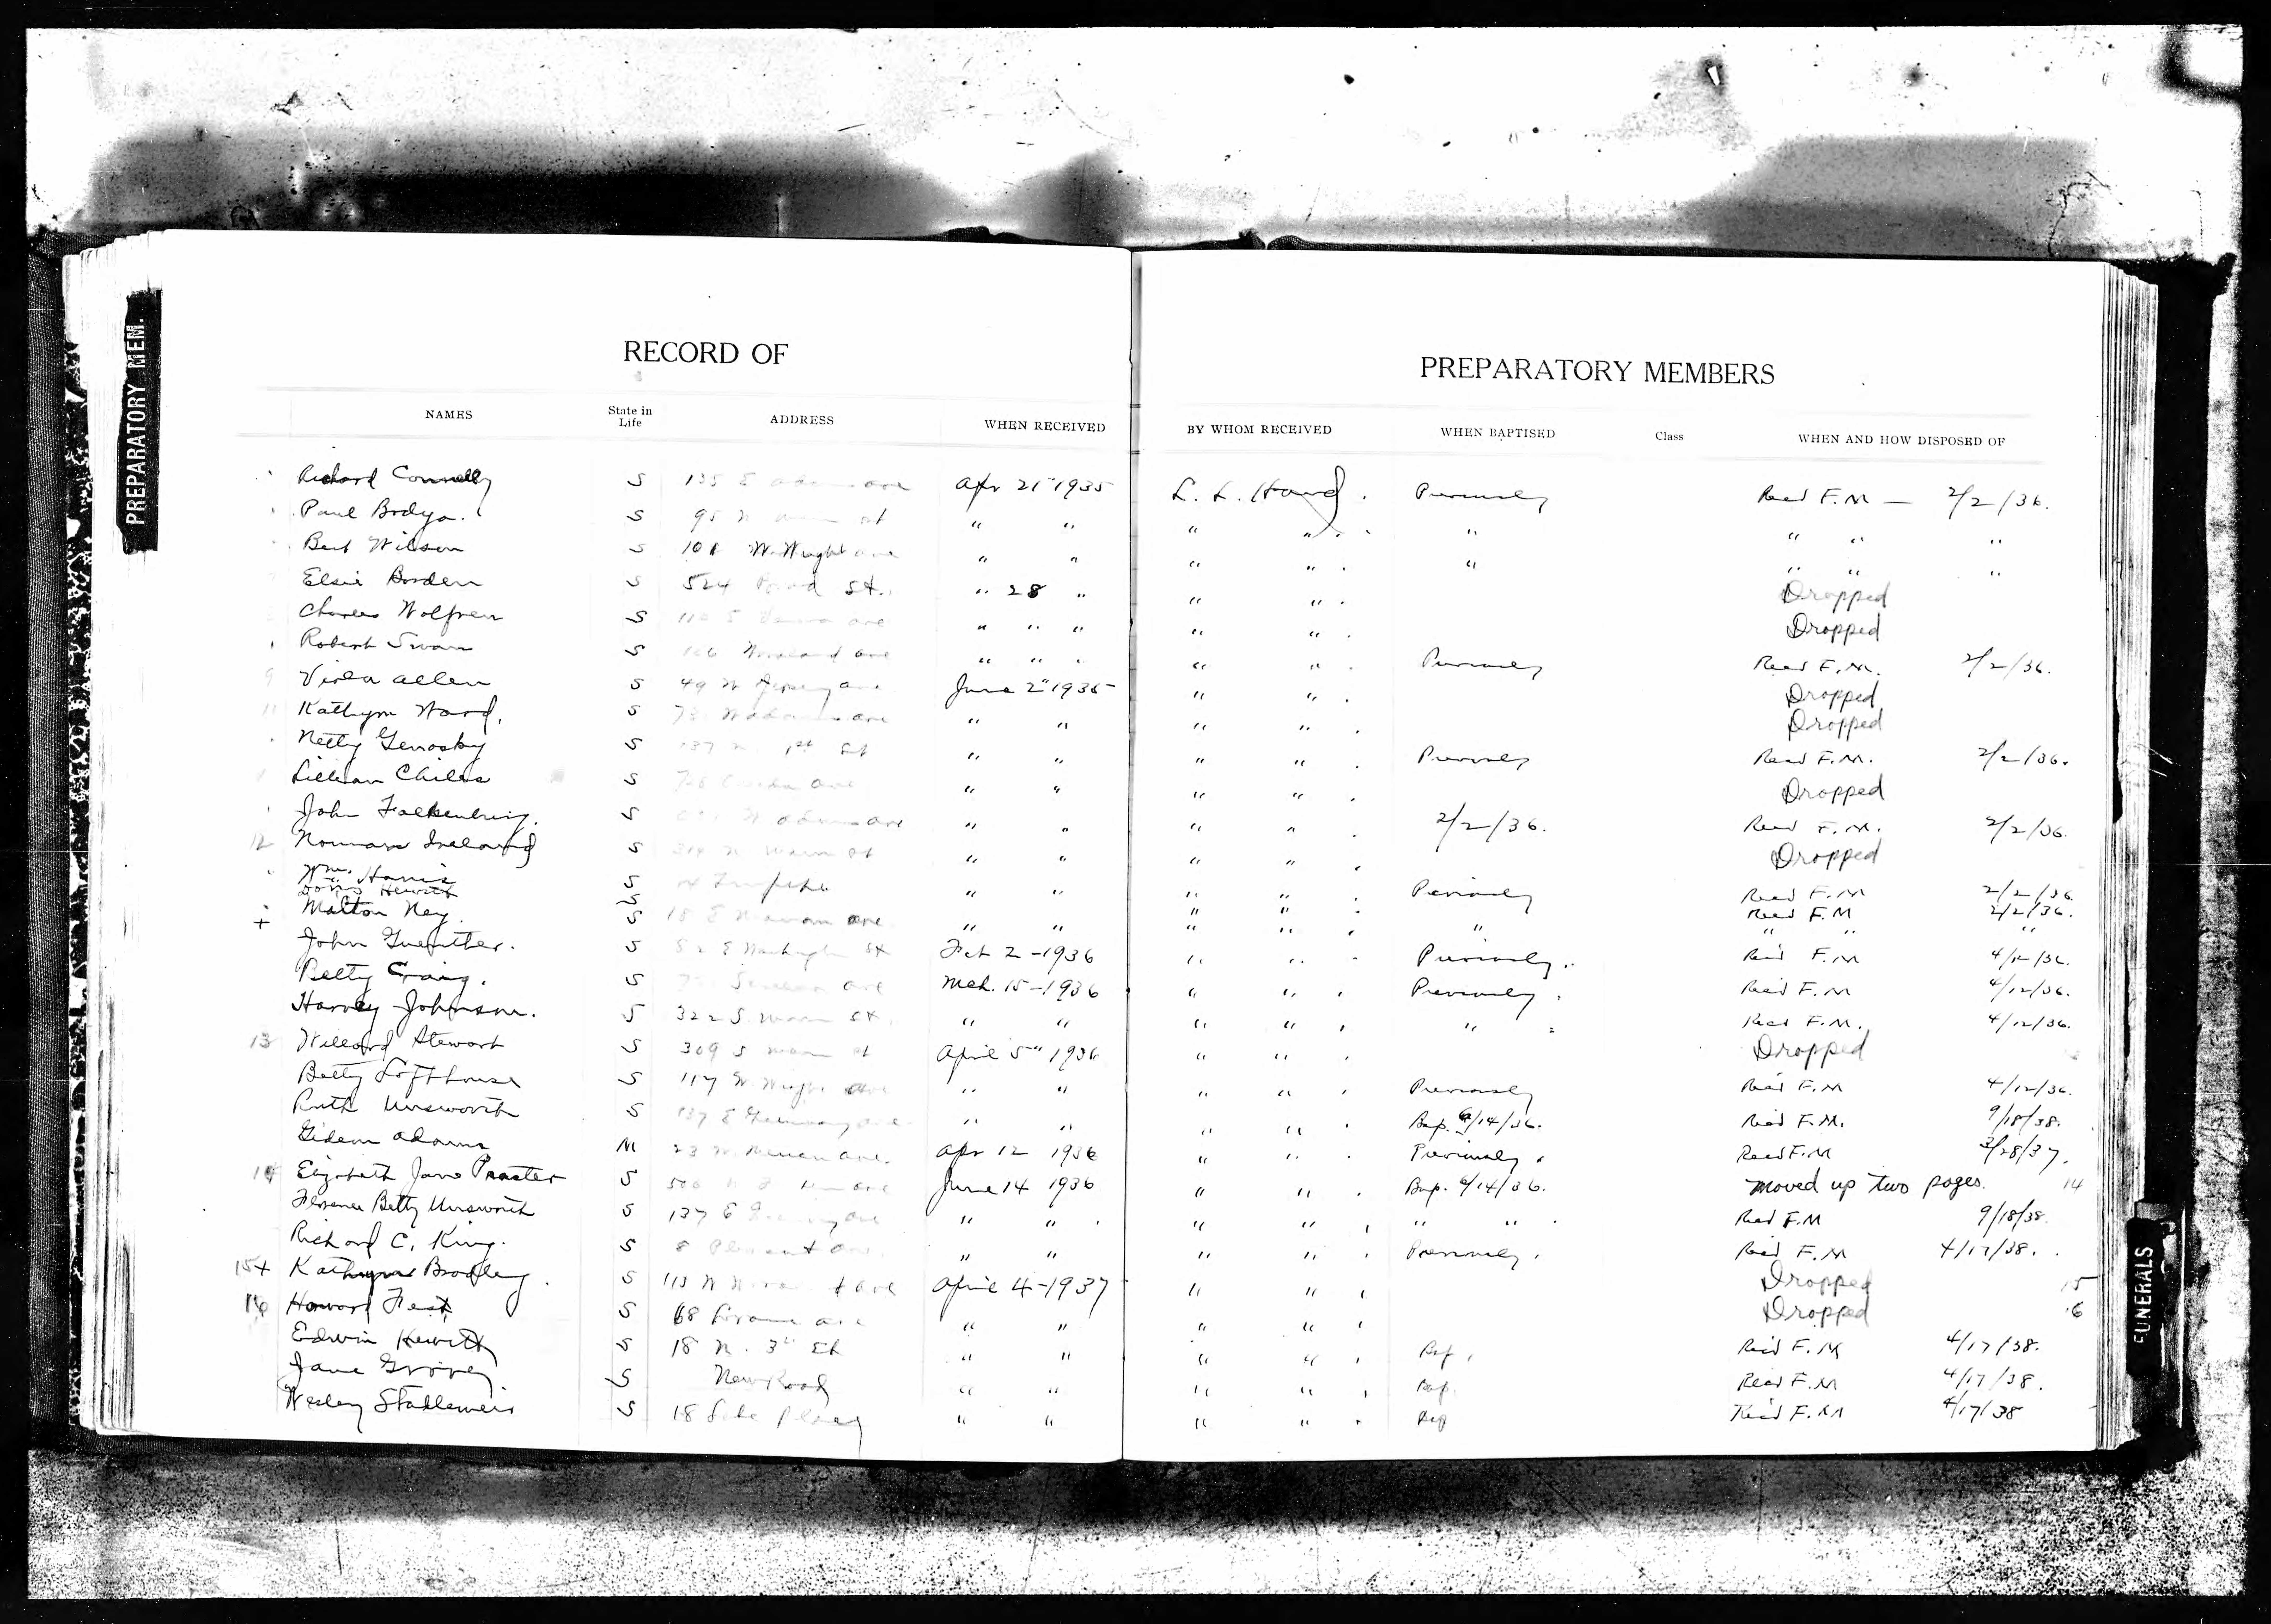 PREPARATORY MEM.
RECORD OF PREPARATORY MEMBERS
NAMES State in Life ADDRESS WHEN RECEIVED BY WHOM RECEIVED WHEN BAPTISED Class WHEN AND HOW DISPOSED OF
Richard Connelly S 135 E Adams ave Apr 21" 1935 L. L. Hand. Previously Recd F.M — 2/2/36.
Paul Brdya. S 95 N st " " " " . " " " "
Bert Wilson S 108 W. Wright ave " " " " . " " " "
Elsie Borden S 524 st. " 28 " " " . Dropped
Charles Wolfrew S 110 S ave " " " " " . Dropped
Robert Swan S 116 Woodland ave " " " " " . Previously Recd F.M. 2/2/36.
Viola Allen S 49 W ave June 2" 1935 " " . Dropped
Kathryn Ward. S 73 W Adams ave " " " " . Dropped
Netty S 137 N. 1st St " " " " . Previously Recd F.M. 2/2/36.
Lillian Childs S ave " " " " . Dropped
John Falkenburg. S W Adams ave " " " " . 2/2/36. Recd F.M. 2/2/36.
12 Norman Ireland S 314 N Main st " " " " . Dropped
Wm. Harris S " " " " . Previously Recd F.M 2/2/36
Hewitt S " " . Recd F.M 2/2/36.
+ Malton Ney. S 18 E ave " " " " . " " " "
John Guenther. S 52 E Washington st Feb 2 - 1936 " " . Previously. Rec'd F.M 4/12/36.
Betty Craig. S ave Mch. 15 - 1936 " " . Previously. Rec'd F.M 4/12/36.
Harvey Johnson. S 322 S. Main St. " " " " . " Recd F.M. 4/12/36.
13 Willard Stewart S 309 S Main st April 5" 1936 " " . Dropped
Betty Lofthouse S 117 W Wright ave " " " " . Previously Rec'd F.M 4/12/36.
Ruth Unsworth S 137 E Greenway ave. " " " " . Bap. 6/14/36. Rec'd F.M. 9/18/38.
Gideon Adams M 23 W. ave. Apr 12 1936 " " . Previously. Recd F.M 3/28/37.
14 Elizabeth Jane Praster S 506 ave June 14 1936 " " . Bap. 6/14/36. moved up two pages. 14
Florence Betty Unsworth S 137 E ave " " . " " . " " . Recd F.M 9/18/38.
Richard C. King. S 8 Pleasant ave. " " " " . Previously. Rec'd F.M 4/17/38.
15+ Kathryn Bradley. S 113 W ave April 4 - 1937 " " . Dropped 15
16 Howard Fest S 68 ave " " " " . Dropped 16
Edwin Hewitt S 18 N. 3rd St " " " " . Bap. Rec'd F.M 4/17/38.
Jane S New Road " " " " . Bap. Recd F.M 4/17/38.
Wesley S 18 Place " " " " . Bap Rec'd F.M 4/17/38
FUNERALS